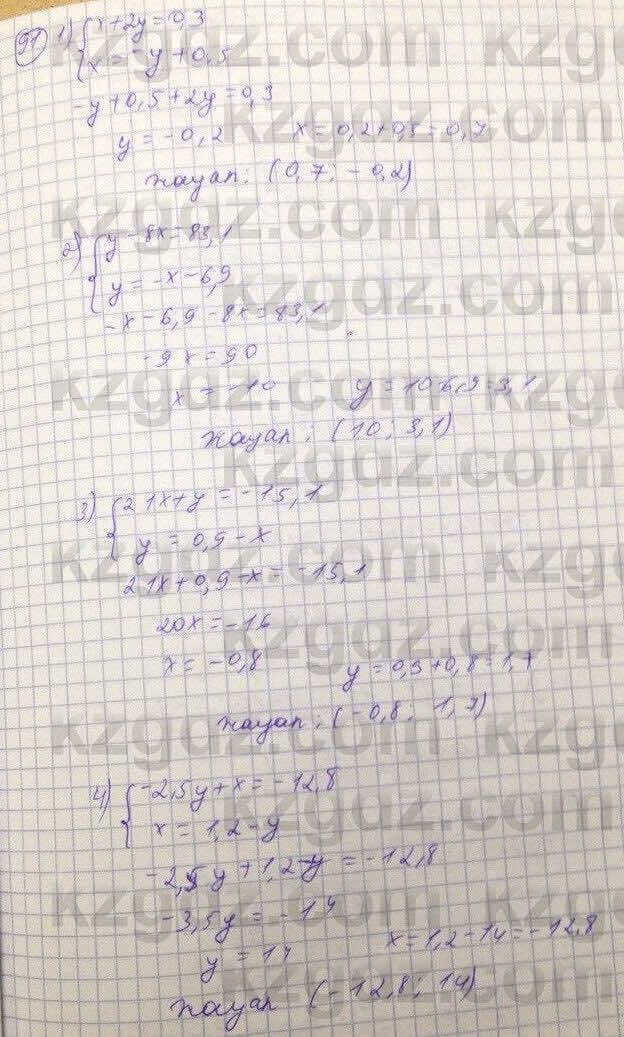 91 1) { x+2y=0,3
x = -y + 0,5
-y+0,5+2y=0,3
y = -0,2   x=0,2+0,5=0,7
жауап: (0,7; -0,2)
2) { y-8x=83,1
y = -x-6,9
-x-6,9-8x=83,1
-9x=90
x = -10   y=10-6,9=3,1
жауап: (10; 3,1)
3) { 21x+y=-15,1
y = 0,9-x
21x+0,9-x=-15,1
20x=-16
x=-0,8   y=0,9+0,8=1,7
жауап: (-0,8; 1,7)
4) { -2,5y+x=-12,8
x = 1,2-y
-2,5y+1,2-y=-12,8
-3,5y=-14
y = 14   x=1,2-14=-12,8
жауап (-12,8; 14)
kzgdz.com